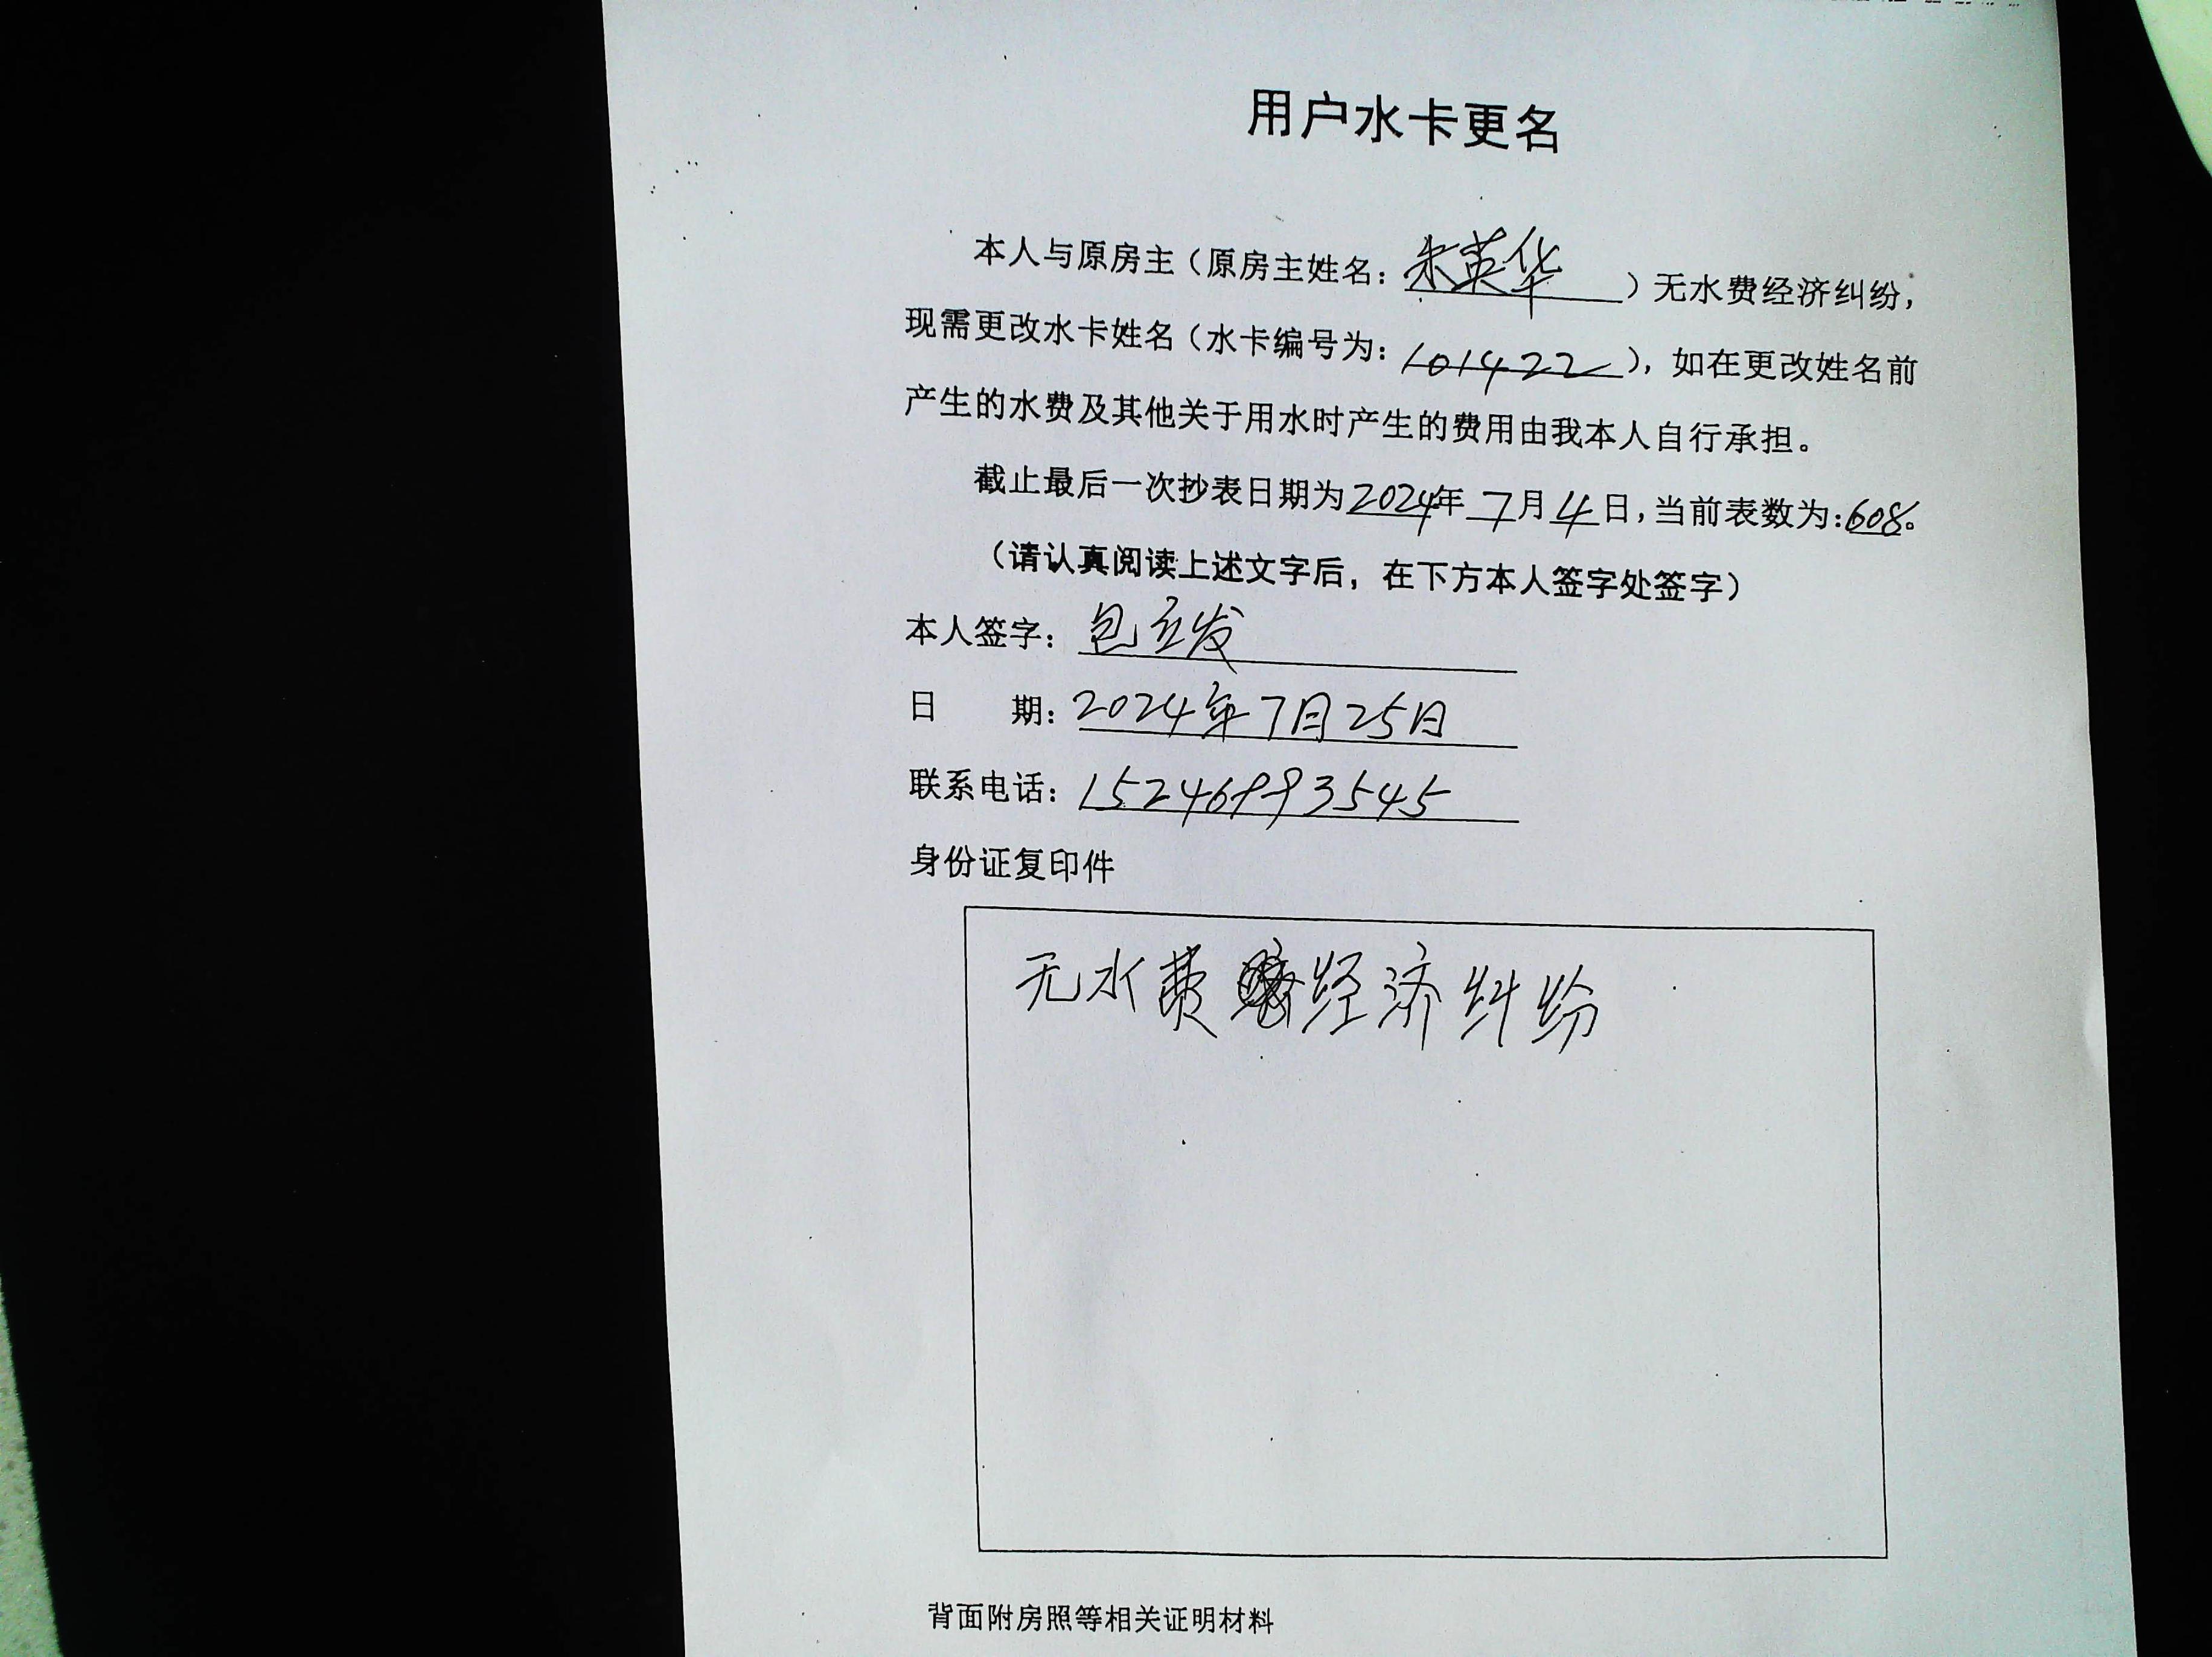 用户水卡更名
本人与原房主（原房主姓名：朱英华）无水费经济纠纷，
现需更改水卡姓名（水卡编号为：101422），如在更改姓名前
产生的水费及其他关于用水时产生的费用由我本人自行承担。
截止最后一次抄表日期为2024年7月4日，当前表数为：608。
（请认真阅读上述文字后，在下方本人签字处签字）
本人签字：包立发
日 期：2024年7月25日
联系电话：15246993545
身份证复印件
无水费经济纠纷
背面附房照等相关证明材料